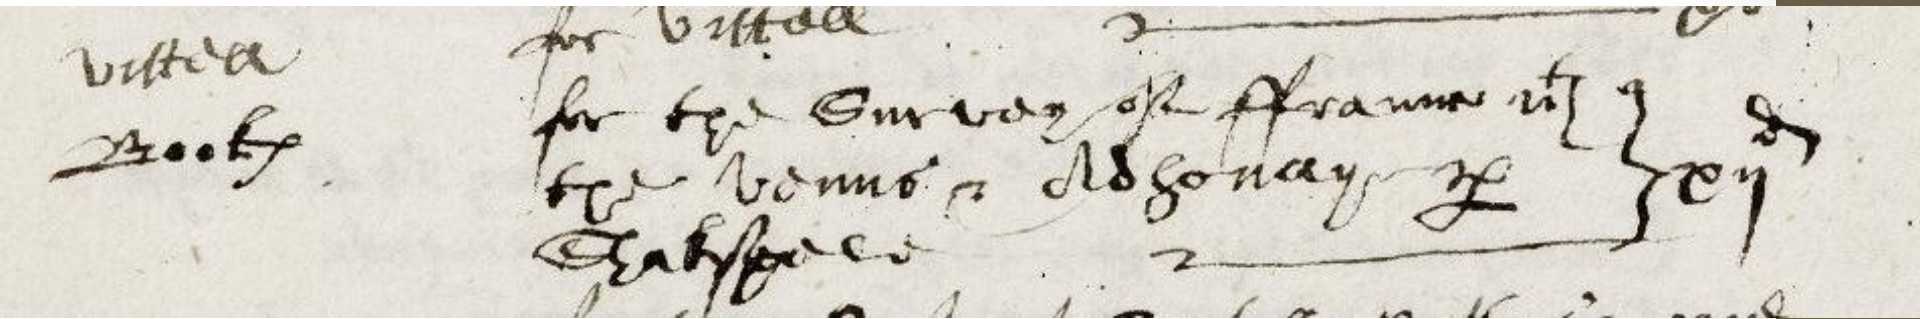 Vittell
Bookes
for Vittell
for the Survey of ffraunce wth
the Venus & Adhonay pr
Shakspere
xijd